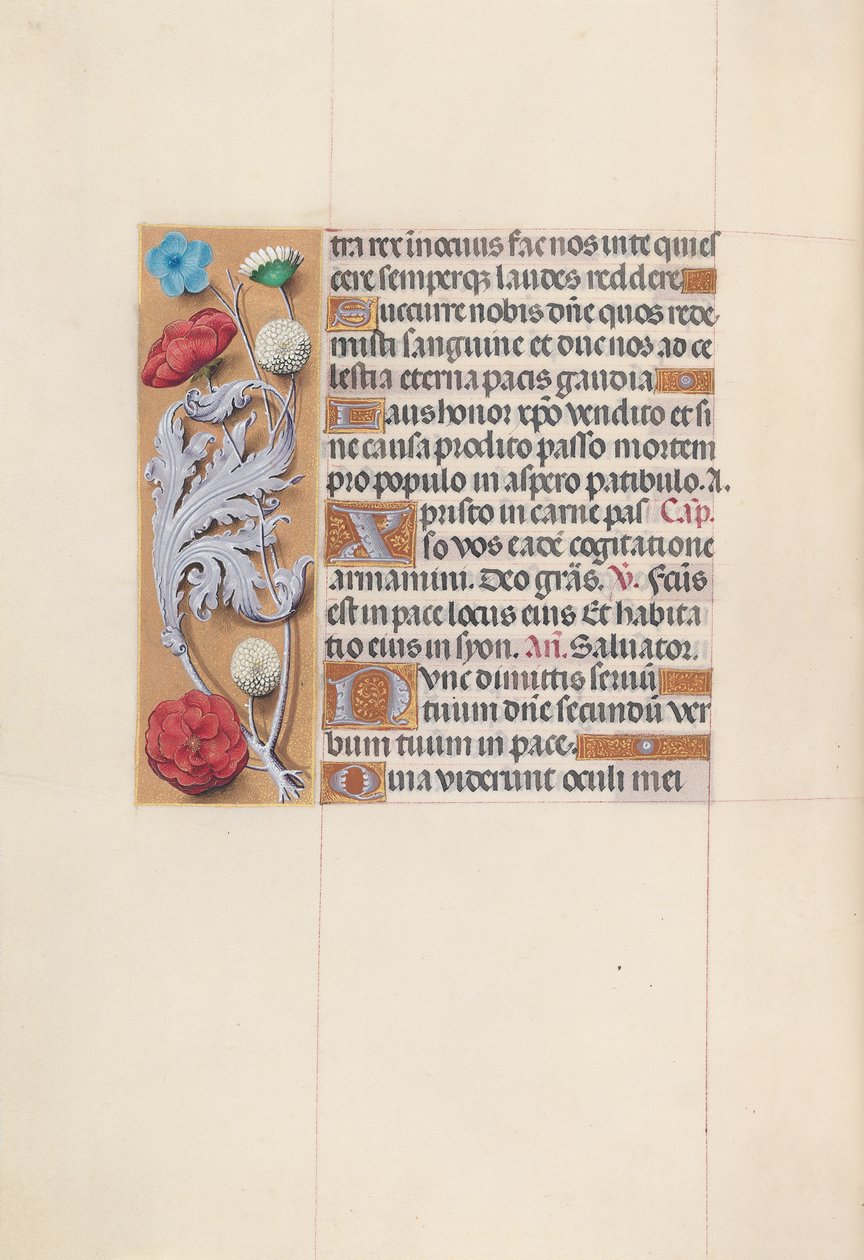 tra rex inocuus fac nos in te quies
cere semperqz laudes reddere
Succurre nobis dñe quos rede
misti sanguine et duc nos ad ce
lestia eterna pacis gaudia
Laus honor xp̄o vendito et si
ne causa prodito passo mortem
pro populo in aspero patibulo. A.
Xpristo in carne pas Cap̄.
so vos eadē cogitatione
armamini. Deo grãs. V̄. Fc̄us
est in pace locus eius Et habita
tio eius in syon. Añ. Saluator.
Nvnc dimittis seruū
tuum dñe secundū ver
bum tuum in pace.
Quia viderunt oculi mei